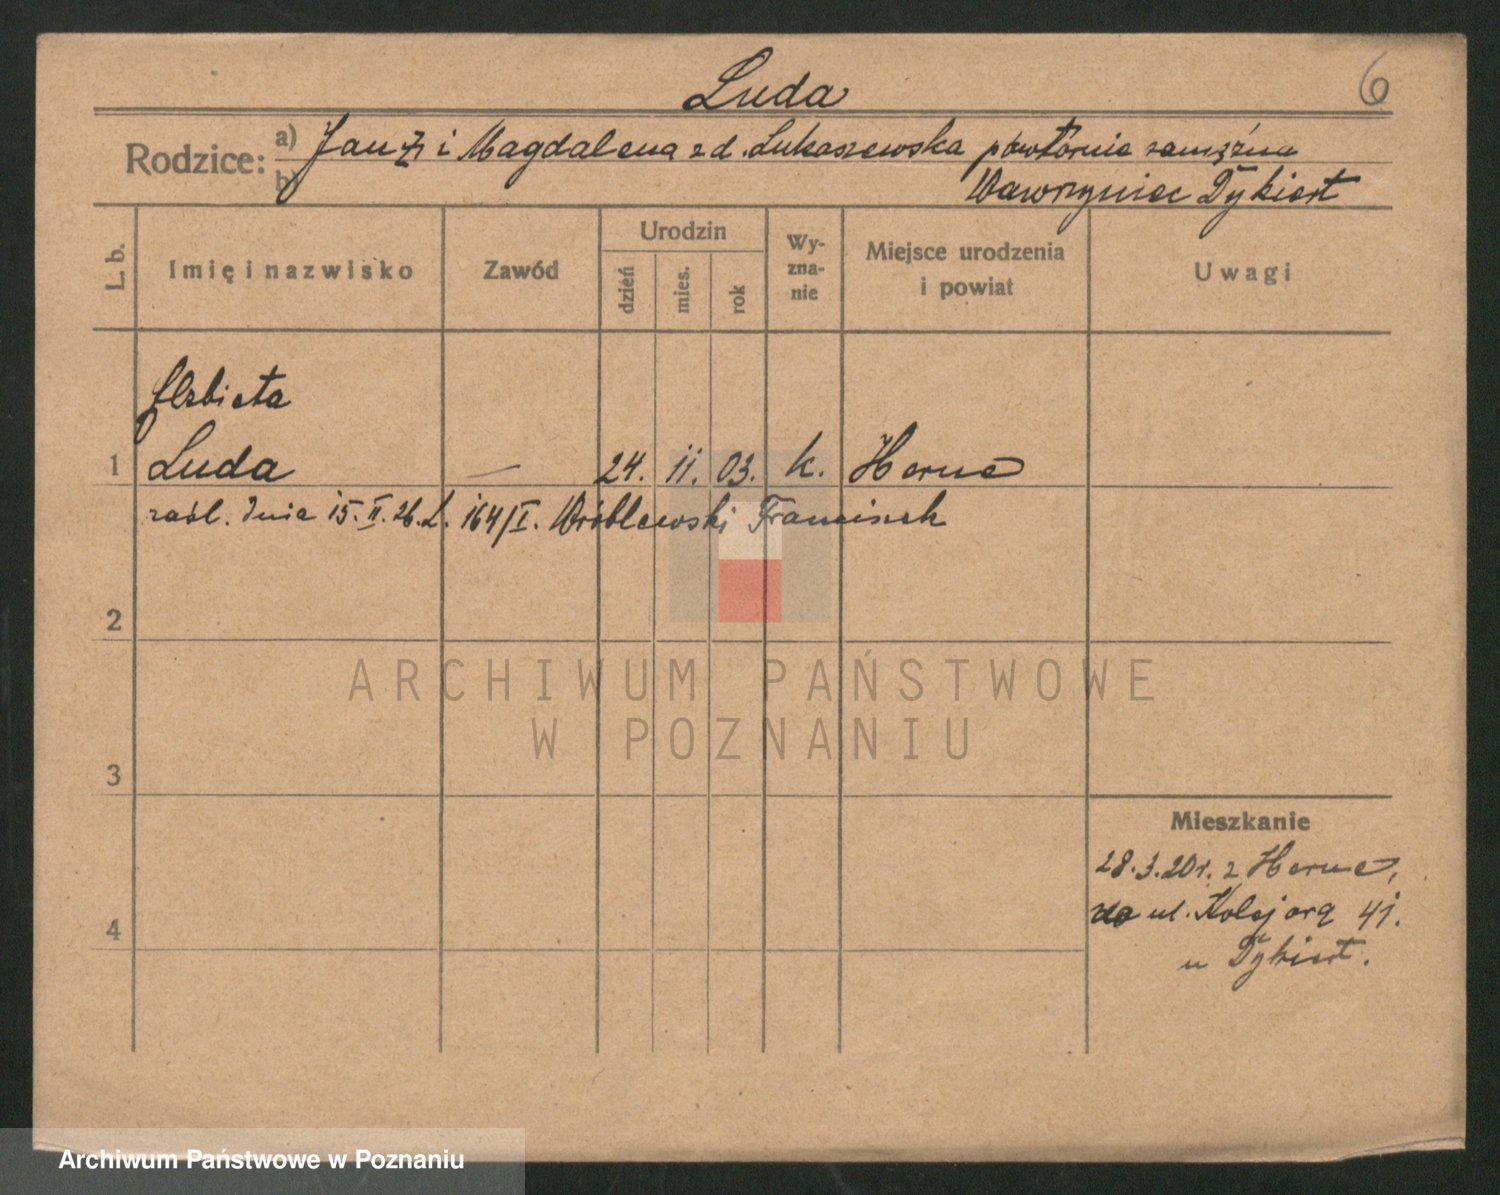 Luda
6
Rodzice:
a) Jan ✝ i Magdalena zd. Łukaszewska powtórnie zamężna
b) Wawrzyniec Dykiert
L. b.
Imię i nazwisko
Zawód
Urodzin
dzień
mies.
rok
Wy-
zna-
nie
Miejsce urodzenia
i powiat
Uwagi
Elżbieta
1 Luda — 24. 11. 03. k. Herne
zaśl. dnia 15. II. 26. L. 164/I. Wróblewski Franciszek
2
ARCHIWUM PAŃSTWOWE
W POZNANIU
3
Mieszkanie
28.3.20r. z Herne,
do ul. Kolejorą 41.
4
u Dykiert.
Archiwum Państwowe w Poznaniu